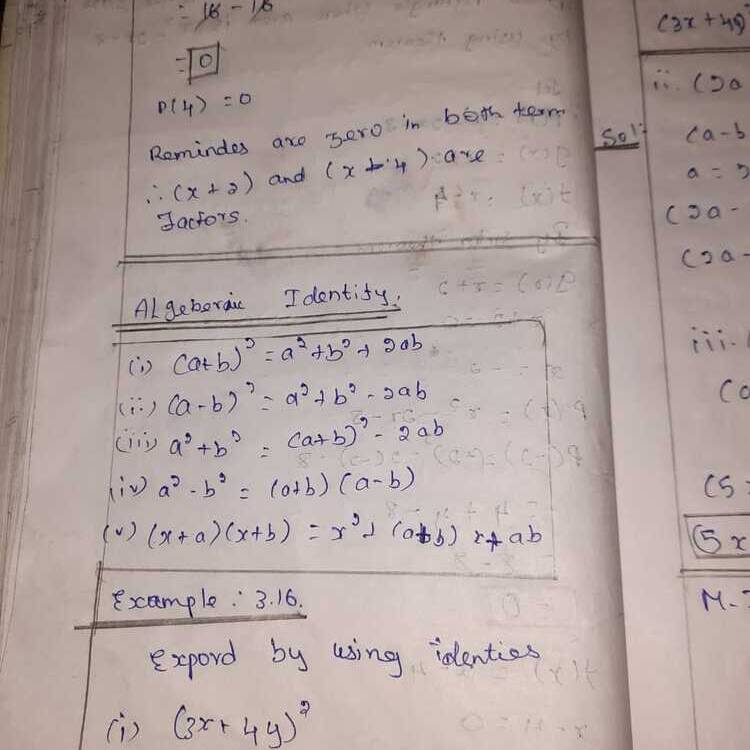 = 16 - 16
= 0
P(4) = 0
Remindes are zero in both term.
∴ (x + 2) and (x - 4) are
Factors.
Algeberaic Identity.
(i) (a+b)² = a² + b² + 2ab
(ii) (a-b)² = a² + b² - 2ab
(iii) a² + b² = (a+b)² - 2ab
(iv) a² - b² = (a+b) (a-b)
(v) (x+a) (x+b) = x² + (a+b) x + ab
Example : 3.16.
Expord by using identies
(i) (3x + 4y)²
(3x + 4y)²
ii. (2a
Sol:
(a-b
a = 2
(2a -
(2a -
iii.
(5
(5x
M-